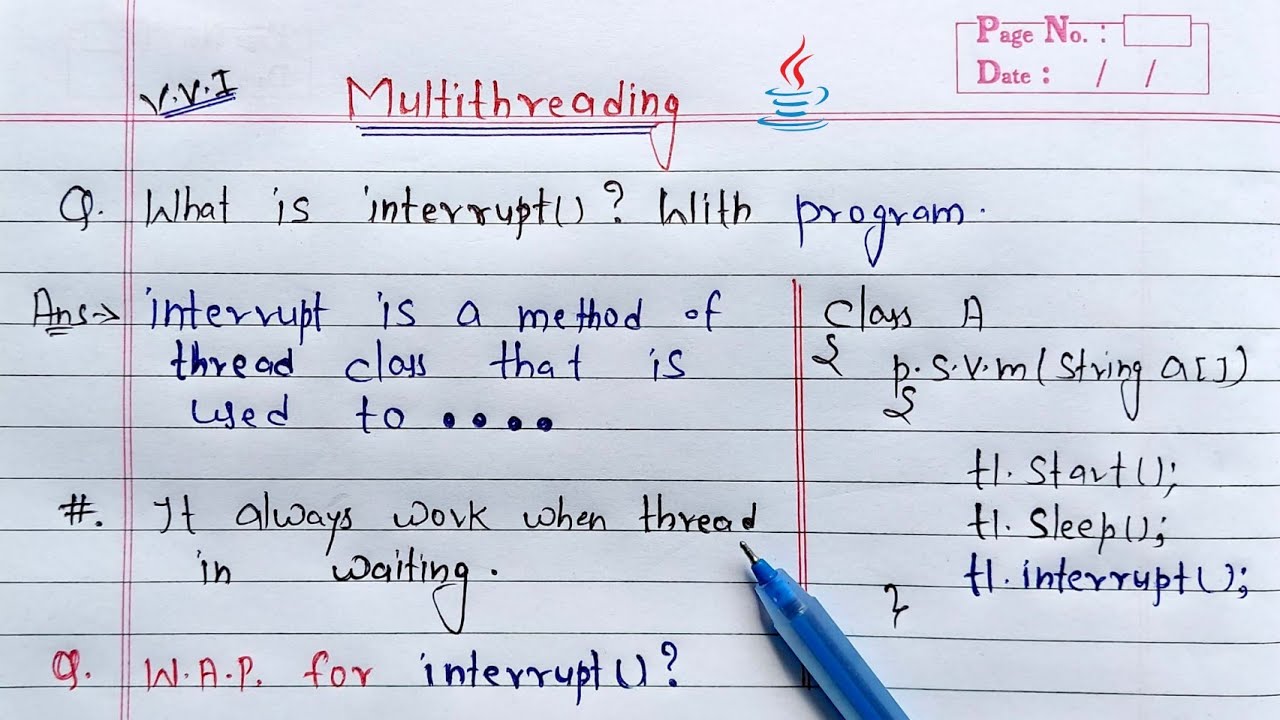 Page No. :
Date : / /
V.V.I
Multithreading
Q. What is interrupt()? With program.
Ans→ interrupt is a method of
thread class that is
used to ....
#. It always work when thread
in waiting.
Q. W.A.P. for interrupt()?
class A
{
p.s.v.m(String a[])
{
t1.Start();
t1.Sleep();
t1.interrupt();
}